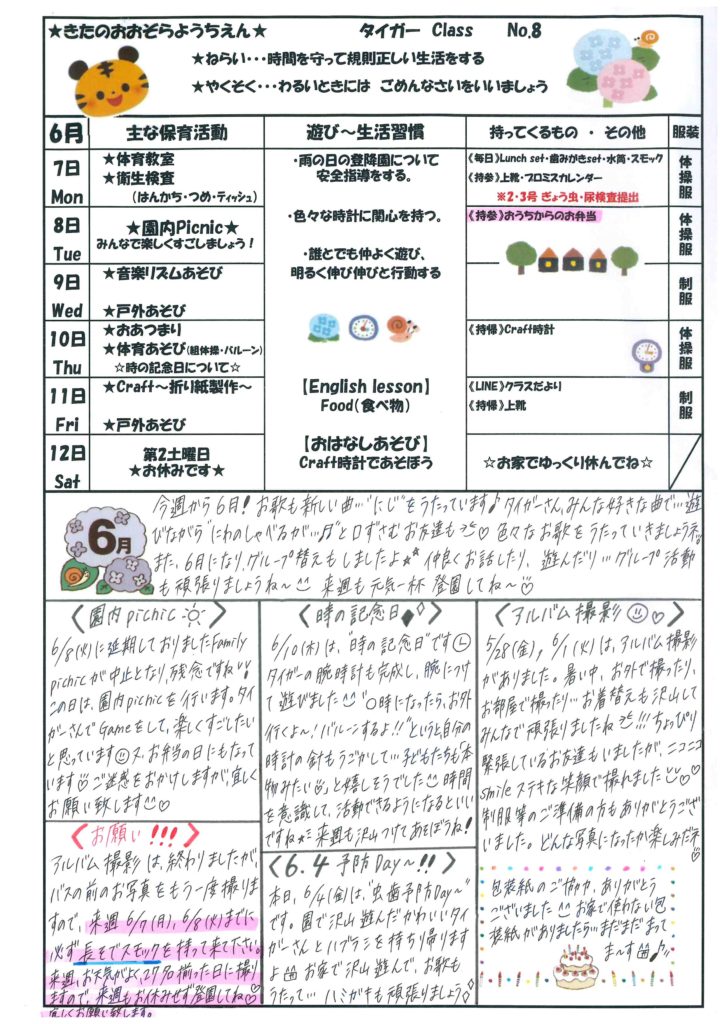 ★きたのおおぞらようちえん★ タイガー Class No.8
★ねらい・・・時間を守って規則正しい生活をする
★やくそく・・・わるいときには ごめんなさいをいいましょう
6月 主な保育活動 遊び～生活習慣 持ってくるもの ・ その他 服装
7日
Mon
★体育教室
★衛生検査
(はんかち・つめ・ティッシュ)
8日
Tue
★園内Picnic★
みんなで楽しくすごしましょう！
9日
Wed
★音楽リズムあそび
★戸外あそび
10日
Thu
★おあつまり
★体育あそび(組体操・バルーン)
☆時の記念日について☆
11日
Fri
★Craft～折り紙製作～
★戸外あそび
12日
Sat
第2土曜日
★お休みです★
・雨の日の登降園について
安全指導をする。
・色々な時計に関心を持つ。
・誰とでも仲よく遊び、
明るく伸び伸びと行動する
【English lesson】
Food(食べ物)
【おはなしあそび】
Craft時計であそぼう
《毎日》Lunch set・歯みがきset・水筒・スモック
《持参》上靴・プロミスカレンダー
※2・3号 ぎょう虫・尿検査提出
《持参》おうちからのお弁当
《持帰》Craft時計
《LINE》クラスだより
《持帰》上靴
☆お家でゆっくり休んでね☆
体操服
体操服
制服
体操服
制服
6月
今週から6月！お歌も新しい曲…"にじ"をうたっています♪タイガーさん、みんな好きな曲で…遊
びながら"にわのしゃべるが…♬"と口ずさむお友達も♡色々なお歌をうたっていきましょうネ。
また、6月になり、グループ替えもしましたよ★*仲良くお話したり、遊んだり…グループ活動
も頑張りましょうね～ 来週も元気一杯 登園してね～
〈園内picnic〉
6/8(火)に延期しておりましたFamily
picnicが中止となり、残念ですね
この日は、園内picnicを行います。タイ
ガーさんでGameをして、楽しくすごしたい
と思っています ス、お弁当の日にもなって
います♡ご迷惑をおかけしますが、宜しく
お願い致します♡
〈お願い!!!〉
アルバム撮影は、終わりましたが、
バスの前のお写真をもう一度撮りま
すので、来週6/7(月)、6/8(火)までに
必ず長そでスモックを持って来て下さい。
来週、お天気がよく、27名揃った日に撮り
ますので、来週もお休みせず登園してね♡
宜しくお願い致します。
〈時の記念日♦◇〉
6/10(木)は、"時の記念日"です
タイガーの腕時計も完成し、腕につけ
て遊びました "○時になったら、お外
行くよ～！バルーンするよ!!"というと自分の
時計の針もうごかして…子どもたちも"本
物みたい"と嬉しそうでした 時間
を意識して、活動できるようになるといい
ですね* 来週も沢山つけてあそぼうね！
〈6.4 予防Day～!!〉
本日、6/4(金)は、"虫歯予防Day～"
です。園で沢山遊んだかわいいタイ
ガーさんとハブラシを持ち帰ります
よ お家で沢山遊んで、お歌も
うたって… ハミガキも頑張りましょう◇
〈アルバム撮影♡〉
5/28(金)、6/1(火)は、アルバム撮影
がありました。暑い中、お外で撮ったり、
お部屋で撮ったり…お着替えも沢山して
みんなで頑張りましたね!!!ちょっぴり
緊張しているお友達もいましたが、ニコニコ
smileステキな笑顔で撮れました♡
制服等のご準備の方もありがとうござ
いました。どんな写真になったか楽しみだネ
♡
包装紙のご協力、ありがとう
ございました お家で使わない包
装紙がありましたら…まだまだまって
ま～す♪